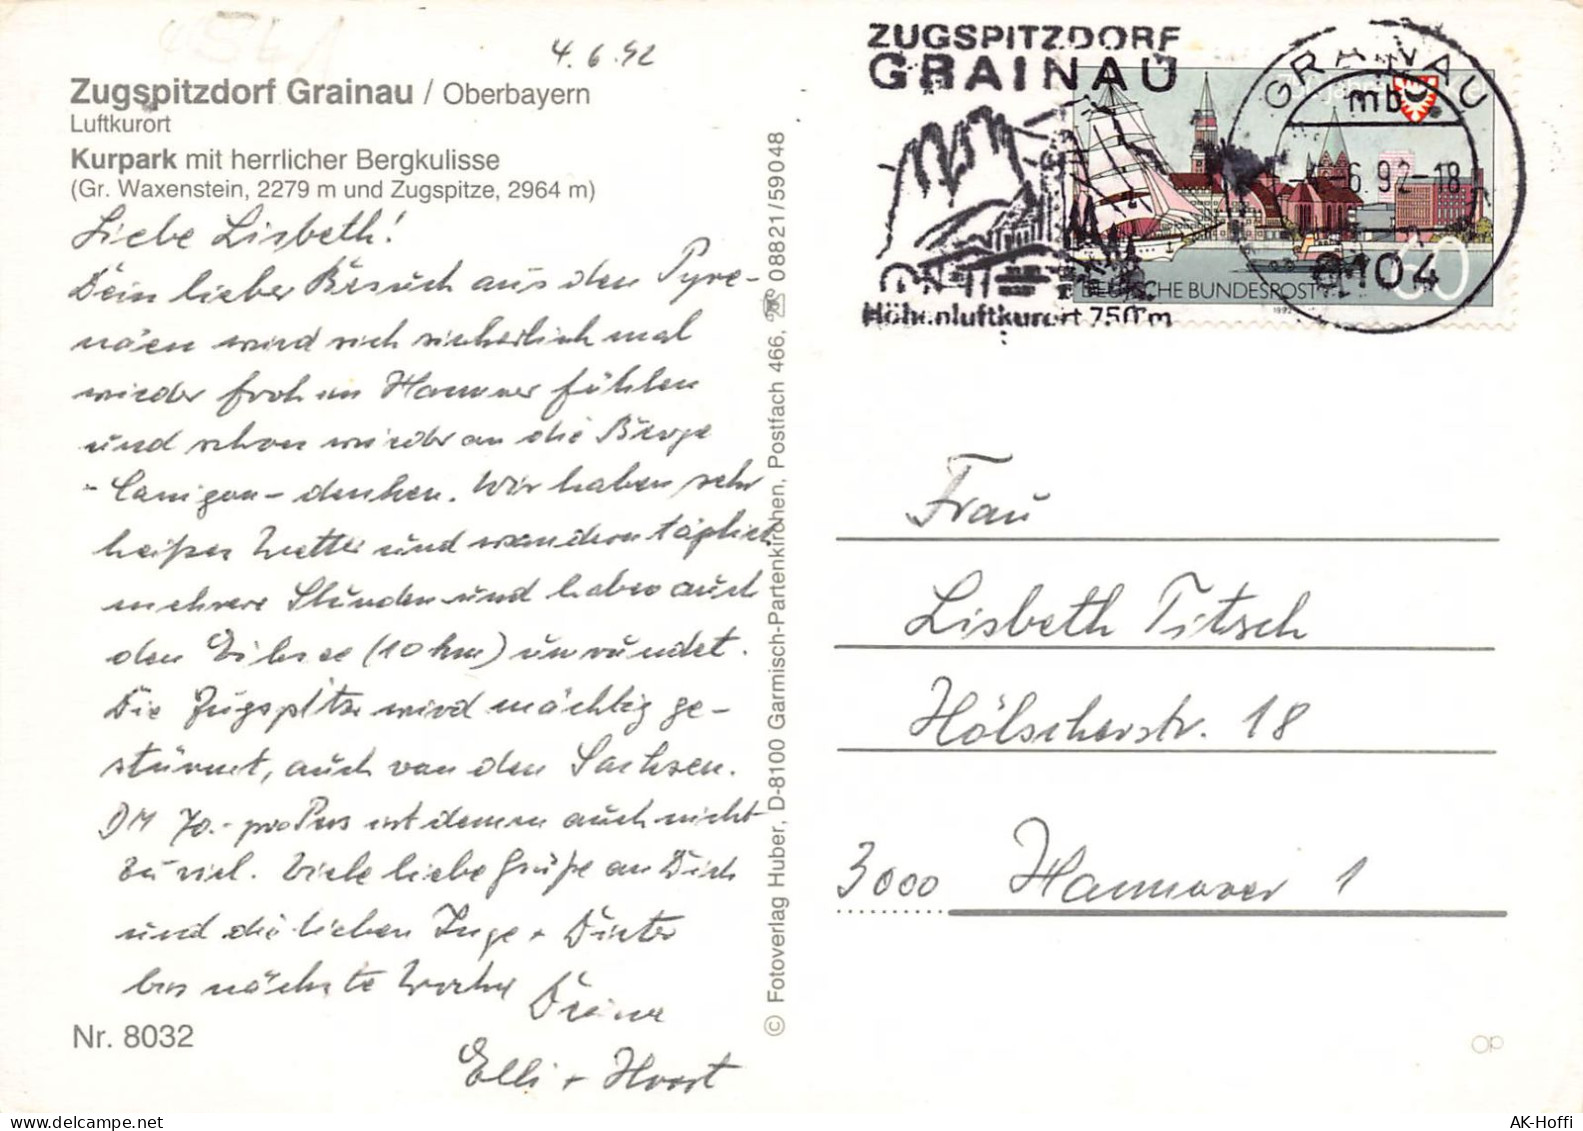 4.6.92
Zugspitzdorf Grainau / Oberbayern
Luftkurort
Kurpark mit herrlicher Bergkulisse
(Gr. Waxenstein, 2279 m und Zugspitze, 2964 m)
Liebe Lisbeth!
Dein lieber Besuch aus den Pyre-
näen wird sich sicherlich mal
wieder froh in Hannover fühlen
und schon wieder an die Berge
- Canigou - denken. Wir haben sehr
heißes Wetter und wandern täglich
mehrere Stunden und haben auch
den Eibsee (10 km) umrundet.
Die Zugspitze wird mächtig ge-
stürmt, auch von den Sachsen.
DM 70.- pro Pers ist denen auch nicht
zu viel. Viele liebe Grüße an Dich
und die lieben Inge + Dieter
bis nächste Woche
Deine
Elli + Horst
Nr. 8032
© Fotoverlag Huber, D-8100 Garmisch-Partenkirchen, Postfach 466, 08821/59048
ZUGSPITZDORF
GRAINAU
Höhenluftkurort 750 m
GRAINAU
mb
-4.-6.92-18
8104
DEUTSCHE BUNDESPOST
60
1992
Frau
Lisbeth Titsch
Hölscherstr. 18
3000 Hannover 1
OP
AK-Hoffi